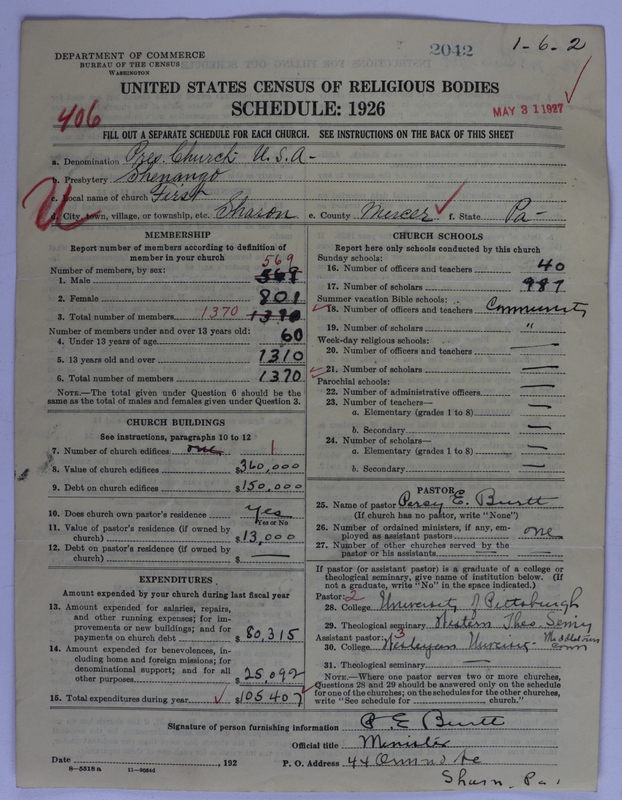 DEPARTMENT OF COMMERCE
BUREAU OF THE CENSUS
WASHINGTON
2042
1-6-2
UNITED STATES CENSUS OF RELIGIOUS BODIES
SCHEDULE: 1926
406
MAY 31 1927
FILL OUT A SEPARATE SCHEDULE FOR EACH CHURCH. SEE INSTRUCTIONS ON THE BACK OF THIS SHEET
a. Denomination Pres. Church U.S.A-
b. Presbytery Shenango
c. Local name of church First
d. City, town, village, or township, etc. Sharon e. County Mercer f. State Pa-
MEMBERSHIP
Report number of members according to definition of
member in your church
569
Number of members, by sex:
1. Male
2. Female 801
3. Total number of members 1370 1370
Number of members under and over 13 years old:
4. Under 13 years of age 60
5. 13 years old and over 1310
6. Total number of members 1370
NOTE.—The total given under Question 6 should be
same as the total of males and females given under Question 3.
CHURCH BUILDINGS
See instructions, paragraphs 10 to 12
7. Number of church edifices one 1
8. Value of church edifices $360,000
9. Debt on church edifices $150,000
10. Does church own pastor's residence Yes
Yes or No
11. Value of pastor's residence (if owned by
church) $13,000
12. Debt on pastor's residence (if owned by
church) $ —
EXPENDITURES
Amount expended by your church during last fiscal year
13. Amount expended for salaries, repairs,
and other running expenses; for im-
provements or new buildings; and for
payments on church debt $80,315
14. Amount expended for benevolences, in-
cluding home and foreign missions; for
denominational support; and for all
other purposes $25,092
15. Total expenditures during year $105407
CHURCH SCHOOLS
Report here only schools conducted by this church
Sunday schools:
16. Number of officers and teachers 40
17. Number of scholars 987
Summer vacation Bible schools:
18. Number of officers and teachers Community
19. Number of scholars "
Week-day religious schools:
20. Number of officers and teachers —
21. Number of scholars —
Parochial schools:
22. Number of administrative officers —
23. Number of teachers—
a. Elementary (grades 1 to 8) —
b. Secondary —
24. Number of scholars—
a. Elementary (grades 1 to 8) —
b. Secondary —
PASTOR
25. Name of pastor Percy E. Burtt
(If church has no pastor, write "None")
26. Number of ordained ministers, if any, em-
ployed as assistant pastors one
27. Number of other churches served by the
pastor or his assistants —
If pastor (or assistant pastor) is a graduate of a college or
theological seminary, give name of institution below. (If
not a graduate, write "No" in the space indicated.)
Pastor: 2
28. College University of Pittsburgh
29. Theological seminary Western Theo. Semy
Assistant pastor: 3
30. College Wesleyan University Middletown
Conn
31. Theological seminary —
NOTE.—Where one pastor serves two or more churches,
Questions 28 and 29 should be answered only on the schedule
for one of the churches; on the schedules for the other churches,
write "See schedule for church."
Signature of person furnishing information P. E. Burtt
Official title Minister
Date , 192 P. O. Address 44 Ormond Ave
8—5518 a
Sharon, Pa.